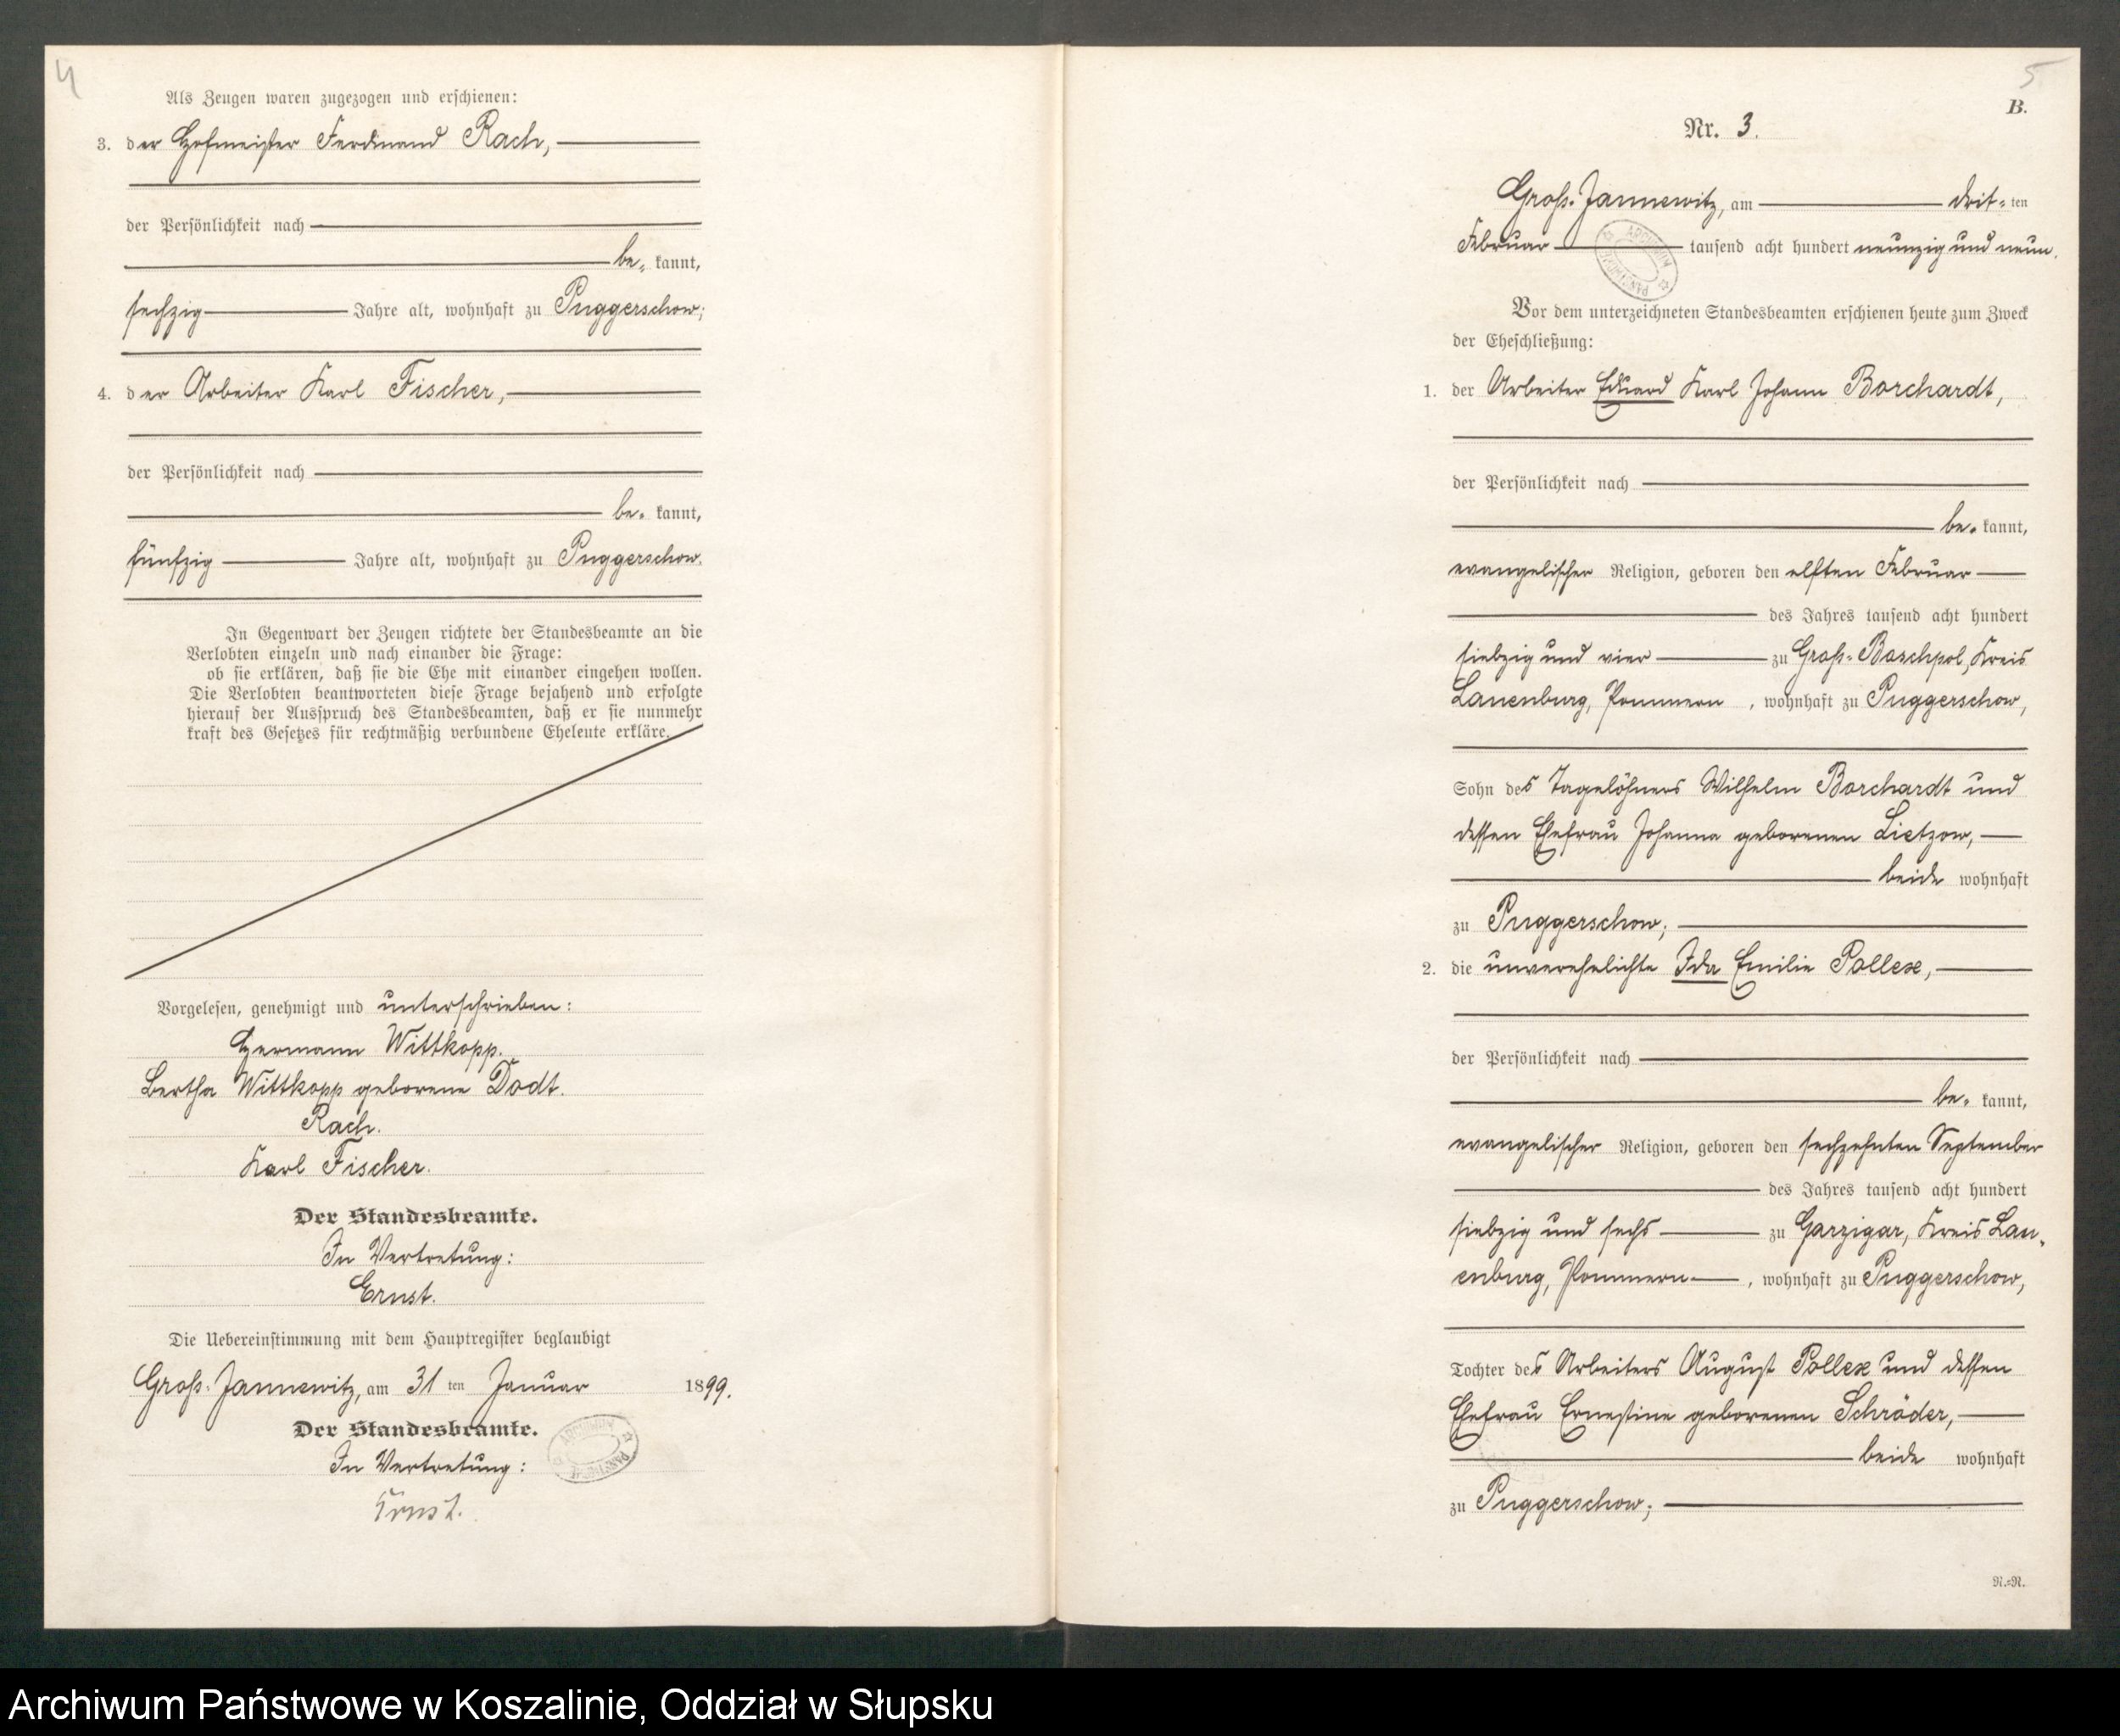 4
Als Zeugen waren zugezogen und erschienen:
3. der Hofmeister Ferdinand Rach,
der Persönlichkeit nach
be- kannt,
sechzig Jahre alt, wohnhaft zu Puggerschow;
4. der Arbeiter Karl Fischer,
der Persönlichkeit nach
be- kannt,
fünfzig Jahre alt, wohnhaft zu Puggerschow.
In Gegenwart der Zeugen richtete der Standesbeamte an die
Verlobten einzeln und nach einander die Frage:
ob sie erklären, daß sie die Ehe mit einander eingehen wollen.
Die Verlobten beantworteten diese Frage bejahend und erfolgte
hierauf der Ausspruch des Standesbeamten, daß er sie nunmehr
kraft des Gesetzes für rechtmäßig verbundene Eheleute erkläre.
Vorgelesen, genehmigt und unterschrieben:
Hermann Wittkopp.
Bertha Wittkopp geborene Dodt.
Rach.
Karl Fischer.
Der Standesbeamte.
In Vertretung:
Ernst.
Die Uebereinstimmung mit dem Hauptregister beglaubigt
Groß-Jannewitz, am 31 ten Januar 1899.
Der Standesbeamte.
In Vertretung:
Ernst.
ARCHIWUM PAŃSTWOWE
5
B.
Nr. 3.
Groß-Jannewitz, am drit- ten
Februar tausend acht hundert neunzig und neun.
ARCHIWUM PAŃSTWOWE
Vor dem unterzeichneten Standesbeamten erschienen heute zum Zweck
der Eheschließung:
1. der Arbeiter Eduard Karl Johann Borchardt,
der Persönlichkeit nach
be- kannt,
evangelischer Religion, geboren den elften Februar
des Jahres tausend acht hundert
siebzig und vier zu Groß-Boschpol, Kreis
Lauenburg, Pommern, wohnhaft zu Puggerschow,
Sohn des Tagelöhners Wilhelm Borchardt und
dessen Ehefrau Johanna geborenen Lietzow,
beide wohnhaft
zu Puggerschow;
2. die unverehelichte Ida Emilie Pollex,
der Persönlichkeit nach
be- kannt,
evangelischer Religion, geboren den sechzehnten September
des Jahres tausend acht hundert
siebzig und sechs zu Garzigar, Kreis Lau-
enburg, Pommern, wohnhaft zu Puggerschow,
Tochter des Arbeiters August Pollex und dessen
Ehefrau Ernestine geborenen Schröder,
beide wohnhaft
zu Puggerschow;
N.=N.
Archiwum Państwowe w Koszalinie, Oddział w Słupsku